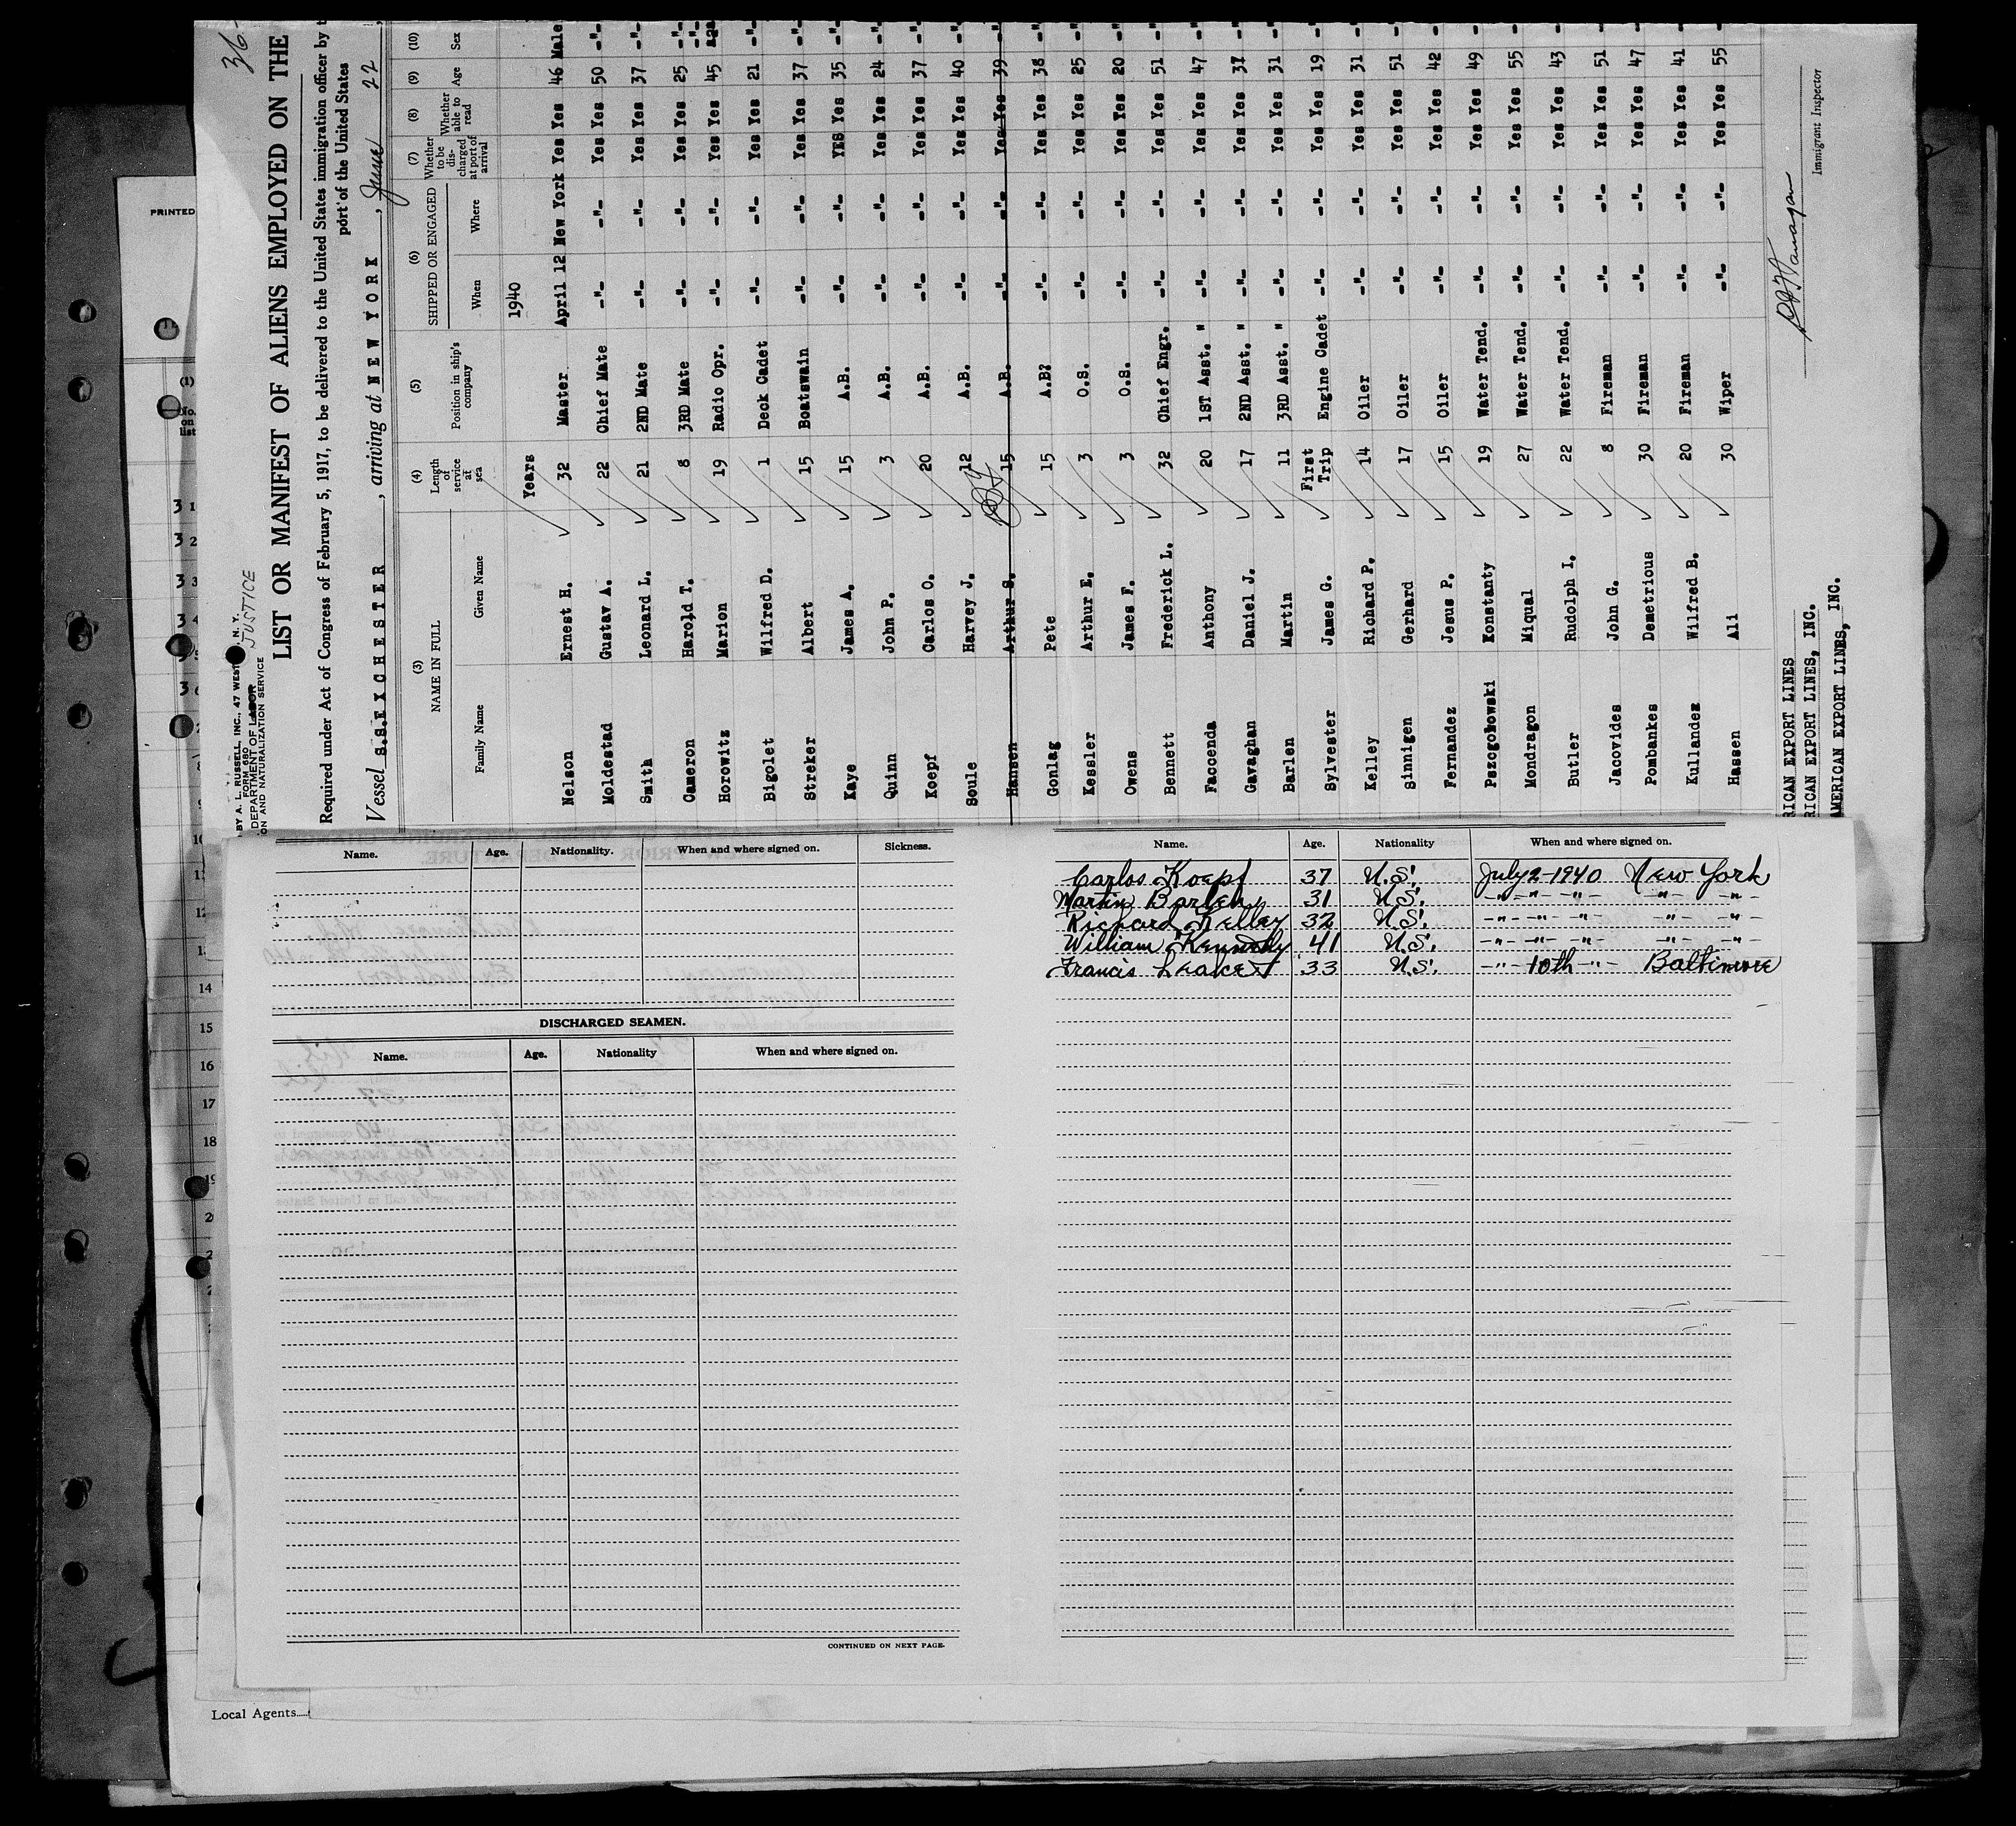 36
BY A. L. RUSSELL, INC., 47 WEST N. Y.
FORM 680
DEPARTMENT OF LABOR JUSTICE
ON AND NATURALIZATION SERVICE
LIST OR MANIFEST OF ALIENS EMPLOYED ON THE
Required under Act of Congress of February 5, 1917, to be delivered to the United States immigration officer by
port of the United States
Vessel S.S.EXCHESTER, arriving at NEW YORK, June 22
(3) NAME IN FULL (4) Length of service at sea (5) Position in ship's company (6) SHIPPED OR ENGAGED (7) Whether to be discharged at port of arrival (8) Whether able to read (9) Age (10) Sex
Family Name Given Name When Where
Years 1940
Nelson Ernest H. 32 Master April 12 New York Yes Yes 46 Male
Moldestad Gustav A. 22 Chief Mate -"- -"- Yes Yes 50 -"-
Smith Leonard L. 21 2ND Mate -"- -"- Yes Yes 37 -"-
Cameron Harold T. 8 3RD Mate -"- -"- Yes Yes 25 -"-
Horowitz Marion 19 Radio Opr. -"- -"- Yes Yes 45
Bigolet Wilfred D. 1 Deck Cadet -"- -"- Yes Yes 21 -"-
Streker Albert 15 Boatswain -"- -"- Yes Yes 37 -"-
Kaye James A. 15 A.B. -"- -"- YES Yes 35 -"-
Quinn John P. 3 A.B. -"- -"- Yes Yes 24 -"-
Koepf Carlos O. 20 A.B. -"- -"- Yes Yes 37 -"-
Soule Harvey J. 12 A.B. -"- -"- Yes Yes 40 -"-
Hansen Arthur S. 15 A.B. -"- -"- Yes Yes 39 -"-
Gonlag Pete 15 A.B? -"- -"- Yes Yes 38 -"-
Kessler Arthur E. 3 O.S. -"- -"- Yes Yes 25 -"-
Owens James F. 3 O.S. -"- -"- Yes Yes 20 -"-
Bennett Frederick L. 32 Chief Engr. -"- -"- Yes Yes 51 -"-
Faccenda Anthony 20 1ST Asst. " -"- -"- Yes Yes 47 -"-
Gavaghan Daniel J. 17 2ND Asst. " -"- -"- Yes Yes 37 -"-
Barlen Martin 11 3RD Asst. " -"- -"- Yes Yes 31 -"-
Sylvester James G. First Trip Engine Cadet -"- -"- Yes Yes 19 -"-
Kelley Richard P. 14 Oiler -"- -"- Yes Yes 31 -"-
Sinnigen Gerhard 17 Oiler -"- -"- Yes Yes 51 -"-
Fernandez Jesus P. 15 Oiler -"- -"- Yes Yes 42 -"-
Pszogobowski Konstanty 19 Water Tend. -"- -"- Yes Yes 49 -"-
Mondragon Miqual 27 Water Tend. -"- -"- Yes Yes 55 -"-
Butler Rudolph I. 22 Water Tend. -"- -"- Yes Yes 43 -"-
Jacovides John G. 8 Fireman -"- -"- Yes Yes 51 -"-
Pombankes Demetrious 30 Fireman -"- -"- Yes Yes 47 -"-
Kullandez Wilfred B. 20 Fireman -"- -"- Yes Yes 41 -"-
Hassen Ali 30 Wiper -"- -"- Yes Yes 55 -"-
RICAN EXPORT LINES
RICAN EXPORT LINES, INC.
AMERICAN EXPORT LINES, INC.
Immigrant Inspector
PRINTED
Name. Age. Nationality. When and where signed on. Sickness.
DISCHARGED SEAMEN.
Name. Age. Nationality When and where signed on.
CONTINUED ON NEXT PAGE.
Name. Age. Nationality When and where signed on.
Carlos Koepf 37 U.S. July 2-1940 New York
Martin Barlen 31 U.S. -"- -"- -"- -"- -"-
Richard Kelley 32 U.S. -"- -"- -"- -"- -"-
William Kennedy 41 U.S. -"- -"- -"- -"- -"-
Francis 33 U.S. -"- 10th -"- Baltimore
Local Agents